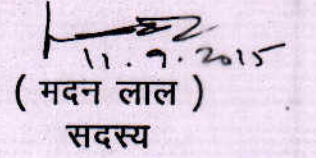 11.9.2015
( मदन लाल )
सदस्य